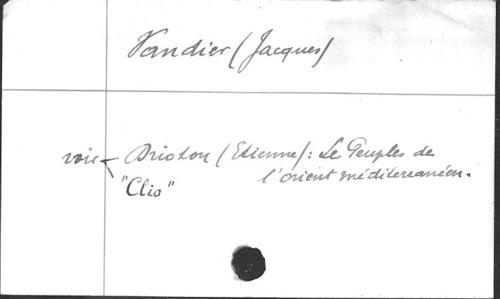 Vandier (Jacques)
voir Drioton (Etienne): Le Peuples de
l'orient méditerranéen.
"Clio"